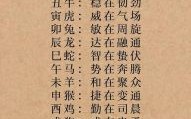 丑牛：稳在韧劲
寅虎：威在气场
卯兔：敏在周旋
辰龙：达在融通
巳蛇：智在蛰伏
午马：势在奔腾
未羊：和在聚众
申猴：捷在变通
酉鸡：勤在司晨